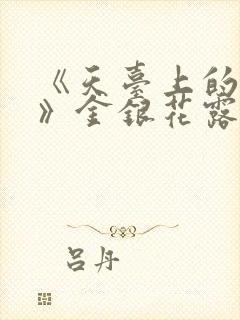 《天臺上的
》金銀花露
吕丹